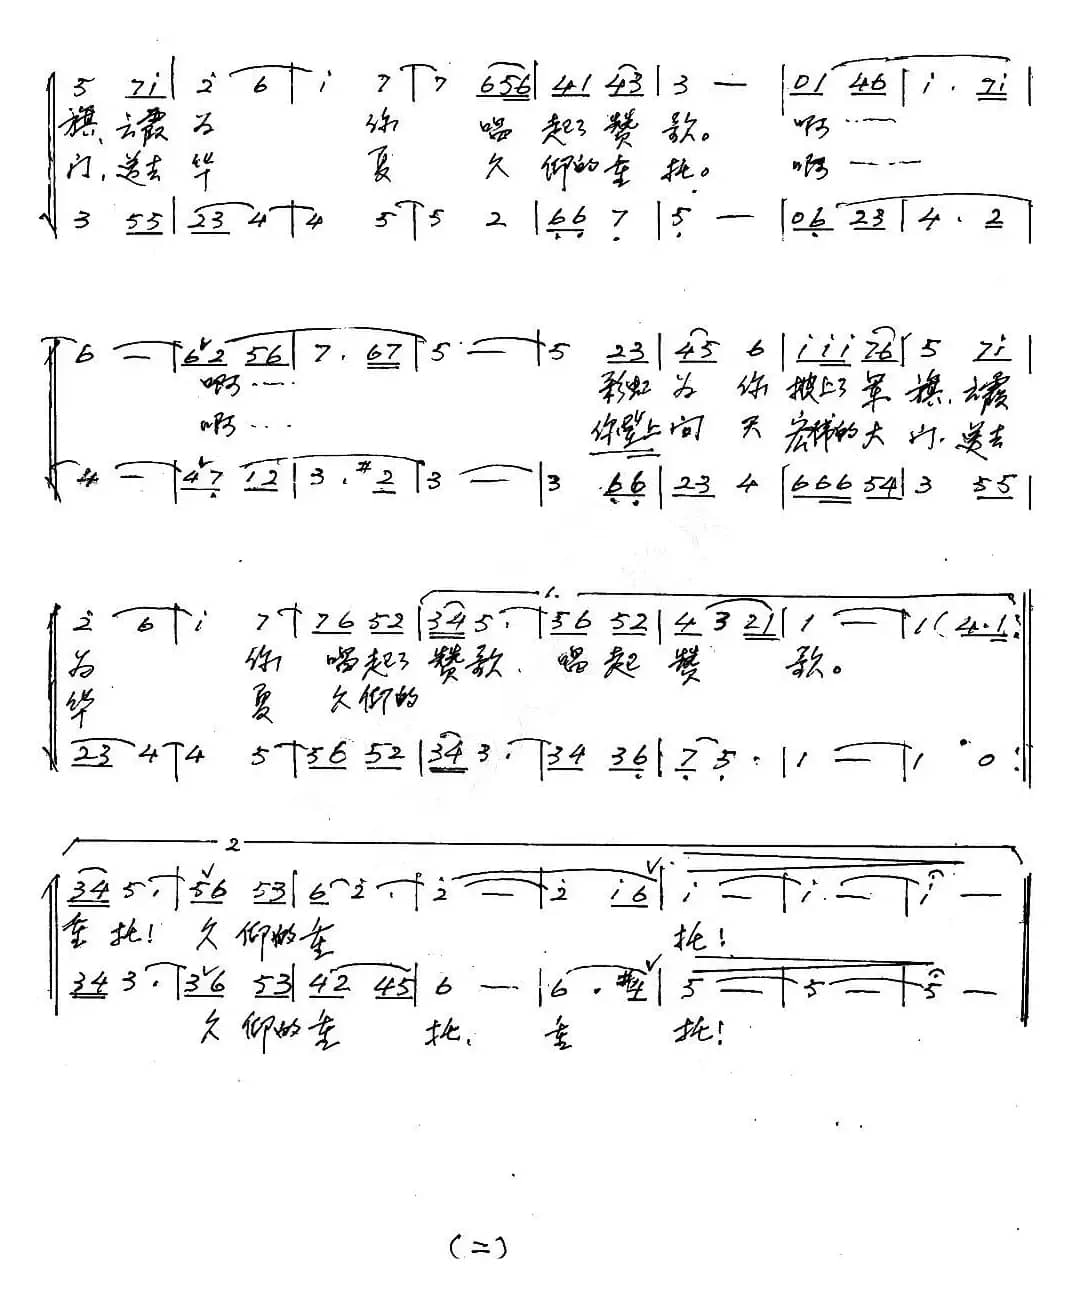 5 7i | 2 6 | i 7 | 7 656 | 41 43 | 3 — | 01 46 | i . 7i |
旗、云霞为 你 唱 起了赞 歌。 啊……
门,送去华 夏 久 仰的重 托。 啊……
3 55 | 23 4 | 4 5 | 5 2 | 66 7 | 5 — | 06 23 | 4 . 2 |
6 — | 62 56 | 7 . 67 | 5 — | 5 23 | 45 6 | iii 76 | 5 7i |
啊…… 彩虹为 你 披上了军 旗、云霞
啊… 你登上问 天 宏伟的大 门,送去
4 — | 47 12 | 3 . #2 | 3 — | 3 66 | 23 4 | 666 54 | 3 55 |
1.
2 6 | i 7 | 76 52 | 34 5 . | 56 52 | 4 3 21 | 1 — | 1 ( 4 . 1 :
为 你 唱起了赞歌、唱起 赞 歌。
华 夏 久仰的
23 4 | 4 5 | 56 52 | 34 3 . | 34 36 | 7 5 . | 1 — | 1 0 :
2
34 5 . | 56 53 | 6 2 . | 2 — | 2 i6 | i — | i . — | i —
重托! 久仰的重 托!
34 3 . | 36 53 | 42 45 | 6 — | 6 . #4 | 5 — | 5 — | 5 —
久仰的重 托, 重 托!
(二)